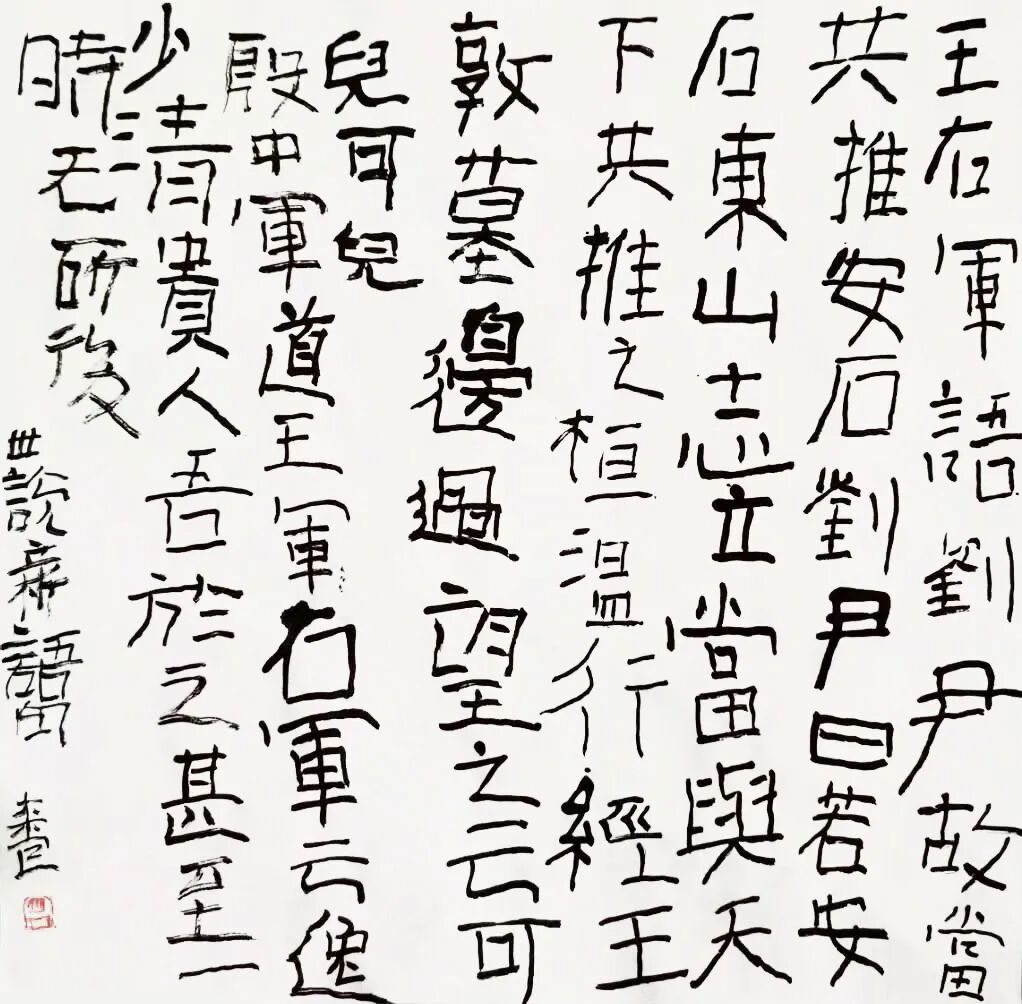 王右軍語劉尹故當
共推安石劉尹曰若安
石東山志立當與天
下共推之桓溫行經王
敦墓邊過望之云可
兒可兒
殷中軍道王軍右軍云逸
少清貴人吾於之甚至一
時无所後
世說新語